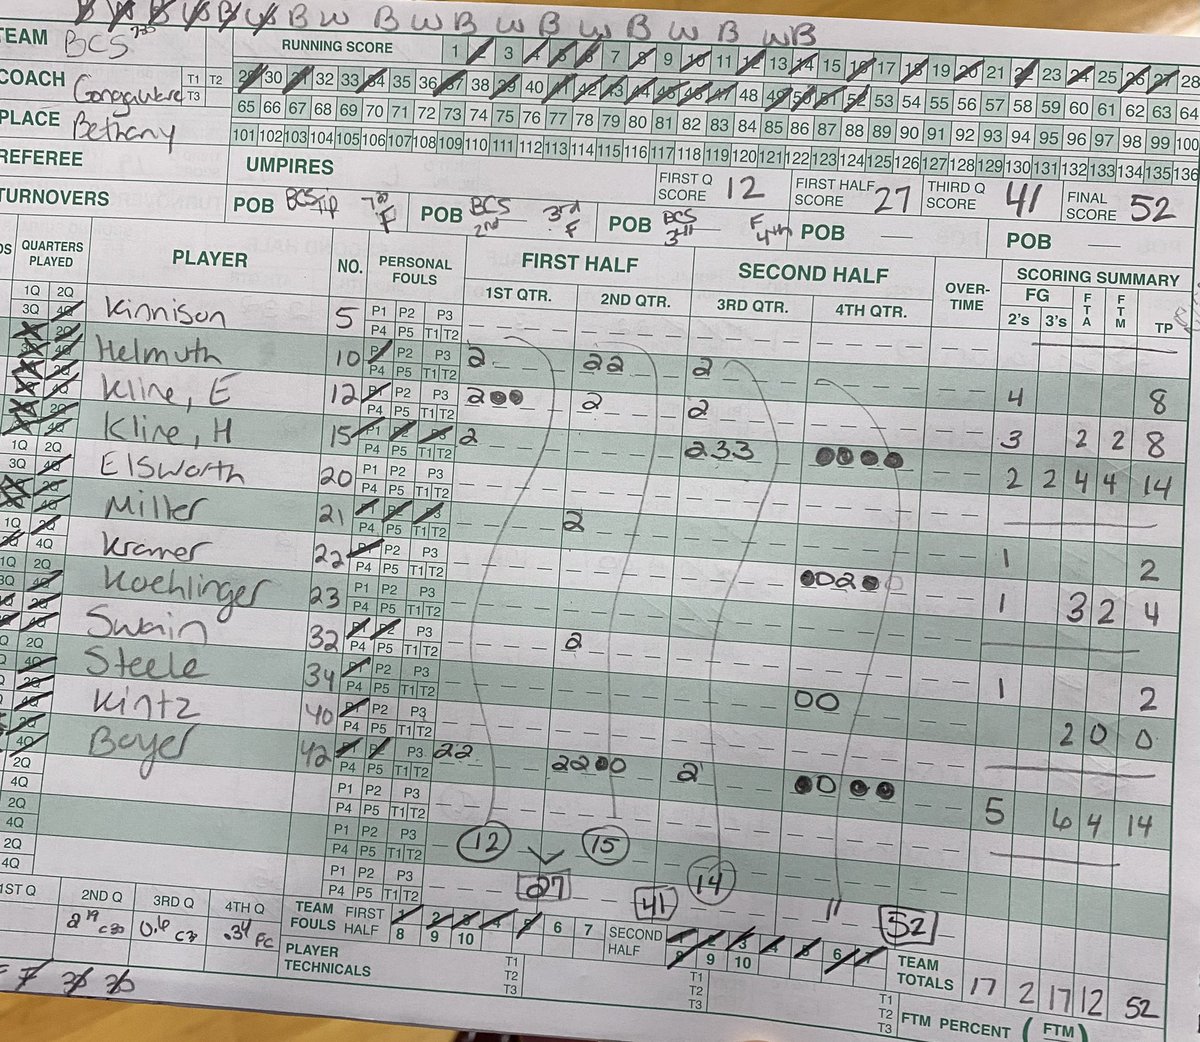 B W B W B W B W B W B W B W B W B
TEAM BCS 7th RUNNING SCORE 1 2 3 4 5 6 7 8 9 10 11 12 13 14 15 16 17 18 19 20 21 22 23 24 25 26 27 28
COACH Gongaware T1 T2 T3 29 30 31 32 33 34 35 36 37 38 39 40 41 42 43 44 45 46 47 48 49 50 51 52 53 54 55 56 57 58 59 60 61 62 63 64
65 66 67 68 69 70 71 72 73 74 75 76 77 78 79 80 81 82 83 84 85 86 87 88 89 90 91 92 93 94 95 96 97 98 99 100
PLACE Bethany 101 102 103 104 105 106 107 108 109 110 111 112 113 114 115 116 117 118 119 120 121 122 123 124 125 126 127 128 129 130 131 132 133 134 135 136
REFEREE UMPIRES FIRST Q SCORE 12 FIRST HALF SCORE 27 THIRD Q SCORE 41 FINAL SCORE 52
TURNOVERS POB BCS Tip F POB BCS 2nd 3rd F POB BCS 3rd F 4th POB — POB —
QUARTERS PLAYED PLAYER NO. PERSONAL FOULS FIRST HALF SECOND HALF OVER-TIME SCORING SUMMARY
1ST QTR. 2ND QTR. 3RD QTR. 4TH QTR. FG 2's 3's FTA FTM TP
Kinnison 5 P1 P2 P3 P4 P5 T1 T2
Helmuth 10 P1 P2 P3 P4 P5 T1 T2 2 22 2 4 8
Kline, E 12 P1 P2 P3 P4 P5 T1 T2 2 2 2 3 2 2 8
Kline, H 15 P1 P2 P3 P4 P5 T1 T2 2 233 2 2 4 4 14
Elsworth 20 P1 P2 P3 P4 P5 T1 T2
Miller 21 P4 P5 T1 T2 2 1 2
Kramer 22 P2 P3 P4 P5 T1 T2 2 1 3 2 4
Koehlinger 23 P1 P2 P3 P4 P5 T1 T2
Swain 32 P3 P4 P5 T1 T2 2 1 2
Steele 34 P2 P3 P4 P5 T1 T2 00 2 0 0
Kintz 40 P2 P3 P4 P5 T1 T2
Boyer 42 P3 P4 P5 T1 T2 22 22 2 5 6 4 14
P1 P2 P3
P4 P5 T1 T2
P1 P2 P3
P4 P5 T1 T2 12 15
P1 P2 P3
P4 P5 T1 T2 27 41 14 11 52
1ST Q 2ND Q 3RD Q 4TH Q TEAM FOULS FIRST HALF 1 2 3 4 5 6 7 8 9 10 SECOND HALF 1 2 3 4 5 6 7 8 9 10
TEAM TOTALS 17 2 17 12 52
PLAYER TECHNICALS T1 T2 T3 T1 T2 T3 T1 T2 T3 FTM PERCENT ( FTM )